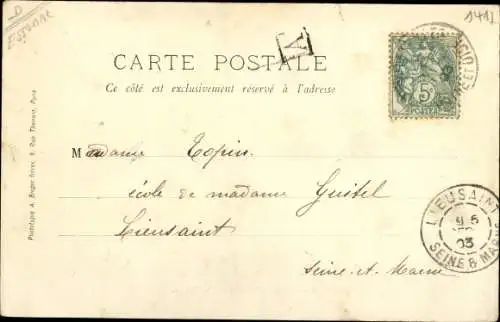 D
Essonne
1411
A
CARTE POSTALE
Ce côté est exclusivement réservé à l'adresse
5c
POSTES
Madame Topin
école de madame Guistel
Lieusaint
Seine-et-Marne
LIEUSAINT
9 5
03
SEINE & MARNE
Phototypie A. Breger frères, 9, Rue Thénard, Paris